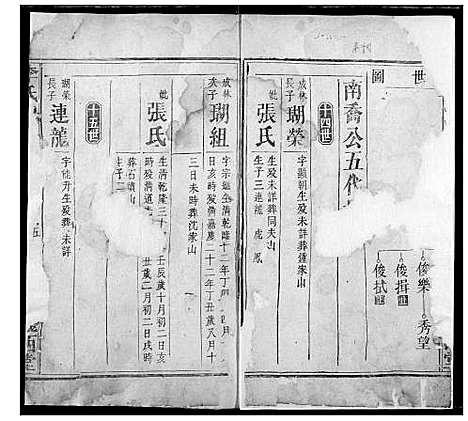 世
圖
俊樂
秀望
俊揖
俊拭
南喬公五代
十四世
成林長子
瑚榮
字顯朝生歿未詳葬鍾家山
張氏
生歿未詳葬同夫山
生子三連龍 虎 鳳
成林次子
瑚組
字宗
生清乾隆十二年丁
月
日亥時歿清嘉慶二十二年丁丑歲八月十
三日未時葬沈家山
妣
張氏
生清乾隆三十
壬辰歲十月初二日亥
時歿清道
丑歲二月初二日戌時
葬石壙山
生子二
十五世
瑚榮長子
連龍
字能升生歿葬未詳
氏
五